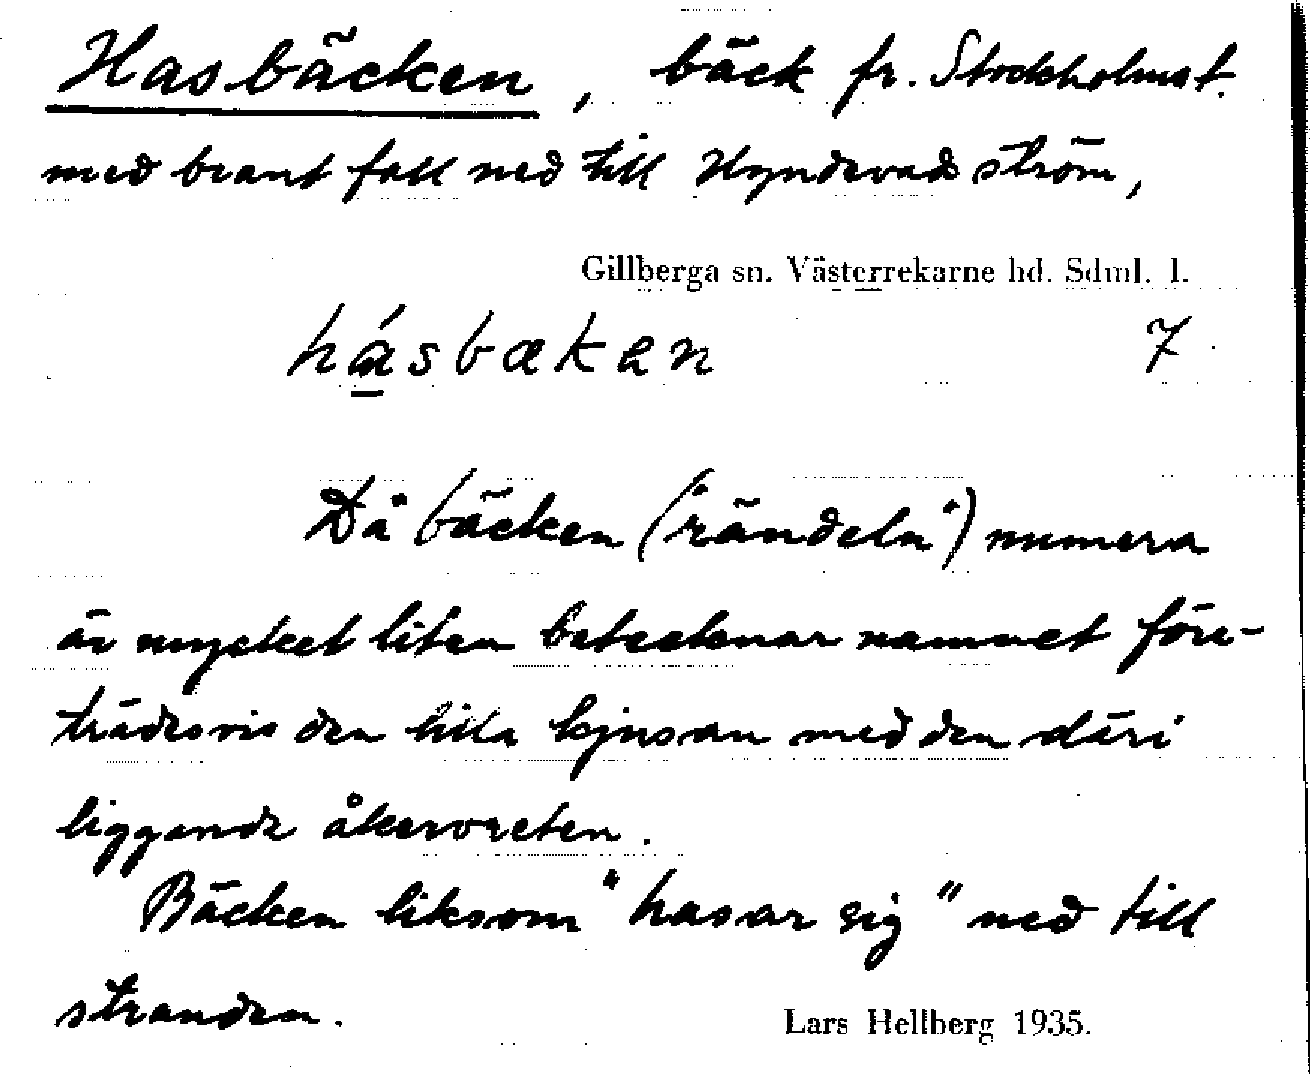 Hasbäcken, bäck fr. Stockholmst.
med brant fall ned till Hyndevads ström,
Gillberga sn. Västerrekarne hd. Sdml. l.
hásbækan 7
Då bäcken ("rändeln") numera
är mycket liten betecknar namnet före-
trädesvis den lilla kjusan med den däri
liggande åkervreten.
Bäcken liksom "hasar sig" ned till
stranden.
Lars Hellberg 1935.